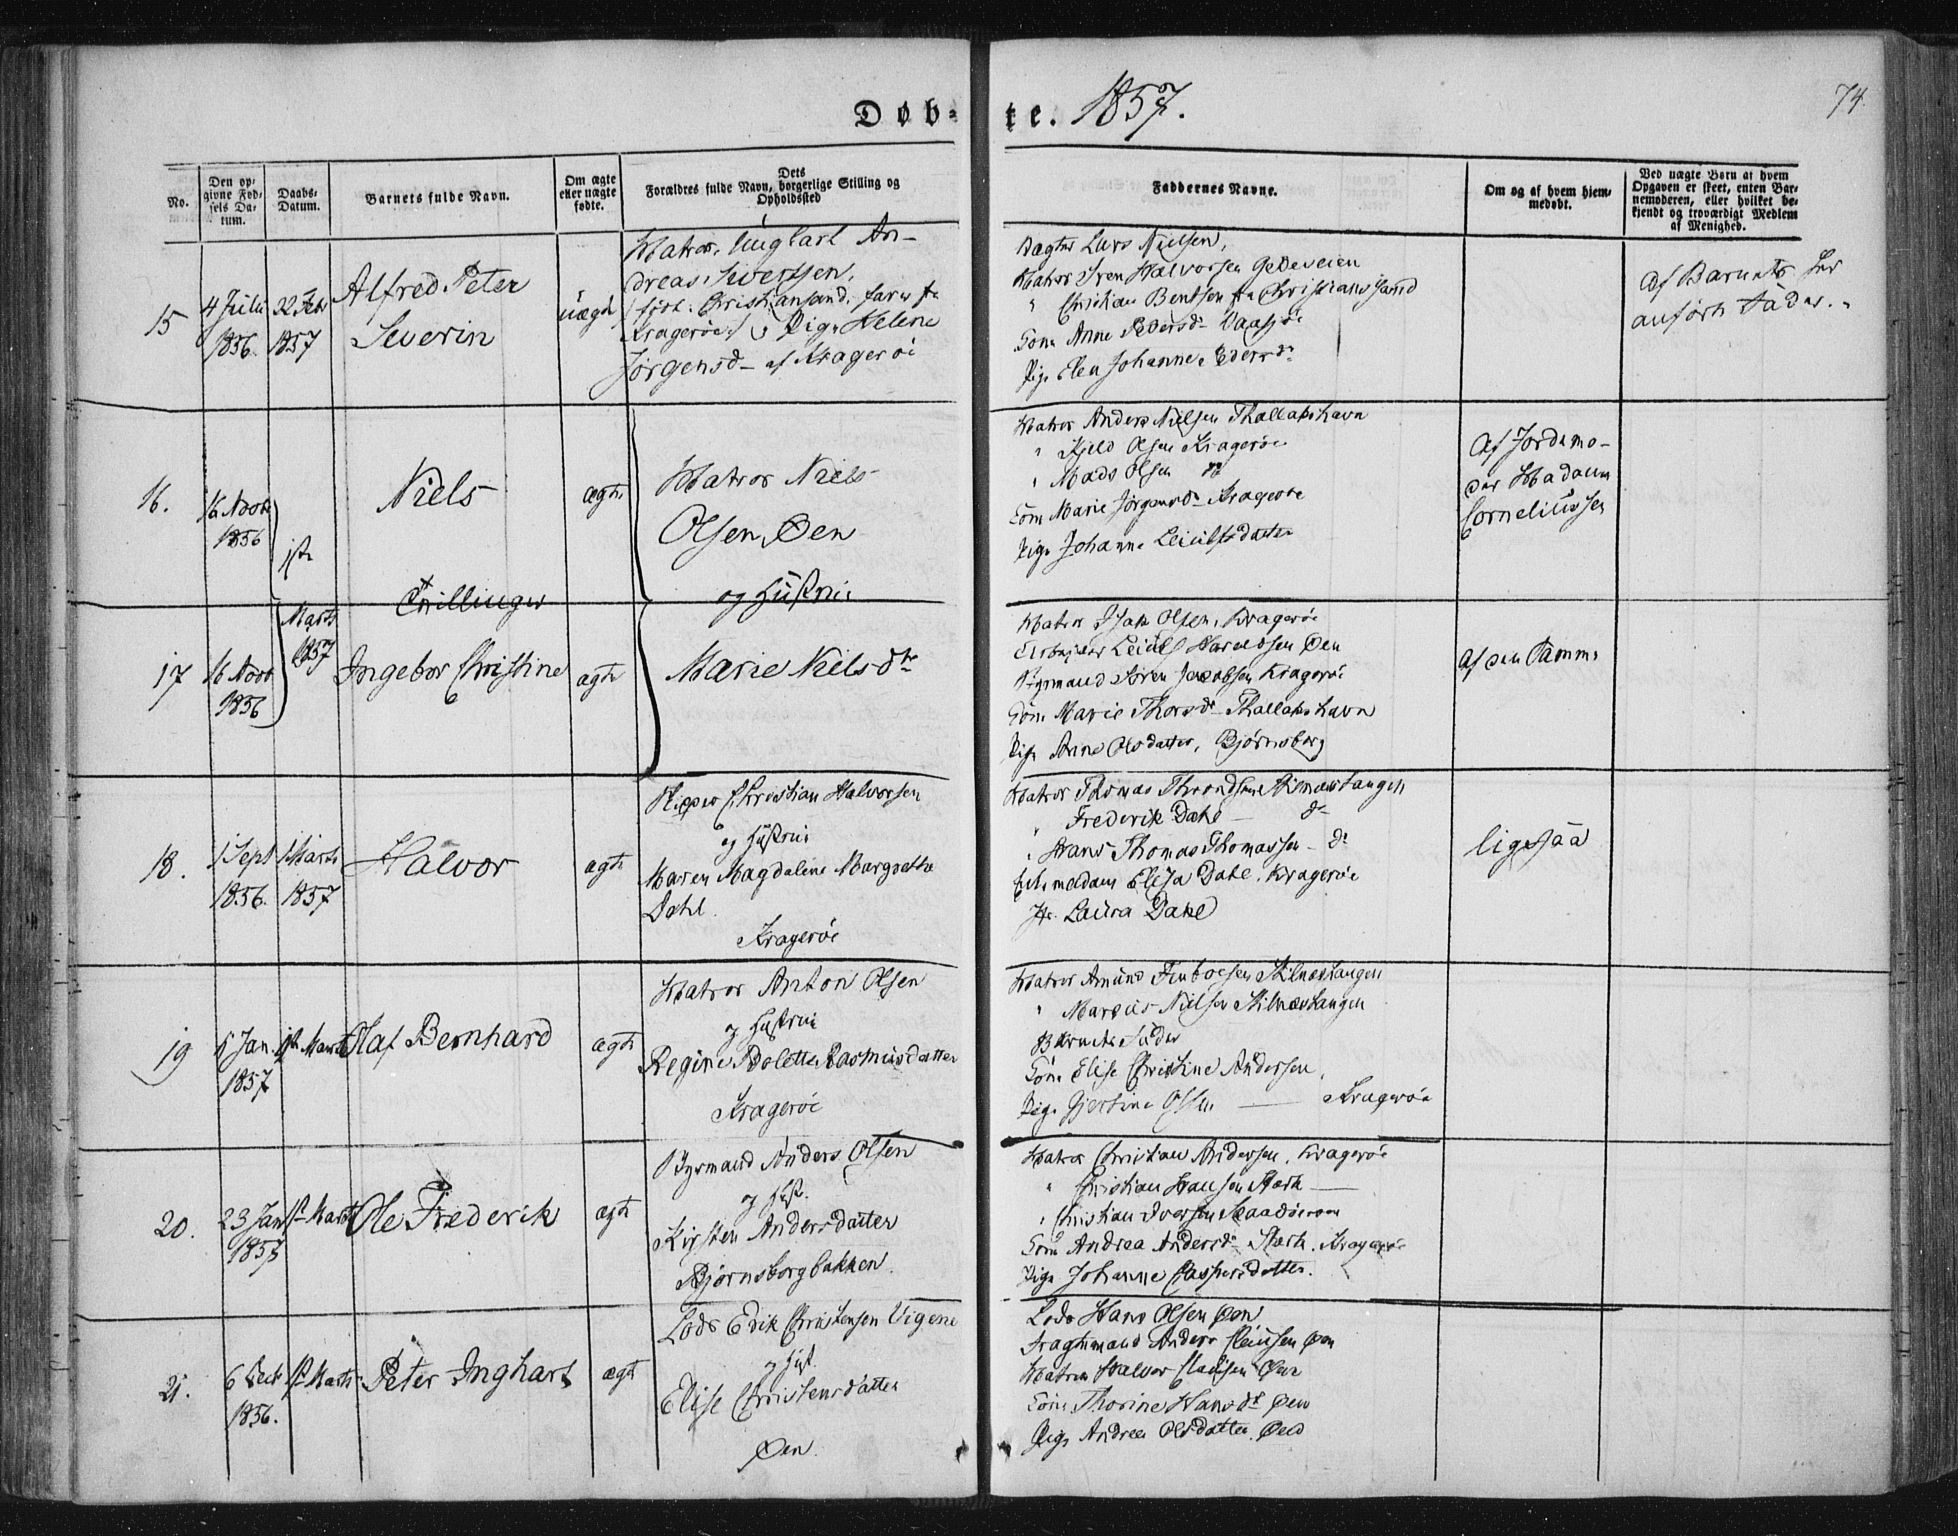 Døb-
te. 1857.
74.
No.
Den op-
givne Fød-
sels Da-
tum.
Daabs-
Datum.
Barnets fulde Navn.
Om ægte
eller uægte
fødte.
Dets
Forældres fulde Navn, borgerlige Stilling og
Opholdssted
Faddernes Navne.
Om og af hvem hjem-
medøbt.
Ved uægte Børn af hvem
Opgaven er skeet, enten Bar-
nemoderen, eller hvilket be-
kjendt og troværdigt Medlem
af Menighed.
15
4 Juli
1856.
22 Febr
1857
Alfred Peter
Severin
uægte
Matros, Ungkarl An-
dreas Sivertsen,
Kragerøe Pige Helene
Jørgensd af Kragerøe
Lars Nielsen,
Matros Iven Halvorsen Gedeveien
" Christian Bentsen fra Christianssand
Kone Anne Pedersd
Pige Elen Johanne Pedersdr
Af Barnets her
anførte Fader.
16.
16 Novbr
1856
1ste
Marts
1857
Niels
Tvillinger
ægte
Matros Niels
Olsen, Øen
og Hustrue
Marie Nielsdtr
Matros Anders Nielsen Thallakshavn
" Kjeld Olsen Kragerøe
" Mads Olsen do
Kone Marie Jørgensdr Kragerøe
Pige Johanne Leiulfsdatter
Af Jordemo-
der Madam
Corneliussen
17
16 Novbr
1856
Ingebor Christine
ægte
Matros Isak Olsen, Kragerøe
Arbeider Leiulf Haraldsen Øen
Styrmand Søren Jacobsen Kragerøe
Kone Marie Thorsdr Thallakshavn
Pige Anne Olsdatter, Bjørnsborg
Af den Samme
18.
1 Sept
1856.
1 Marts
1857
Halvor
ægte
Skipper Christian Halvorsen
og Hustrue
Maren Magdaline Margrethe
Dahl.
Kragerøe
Matros Thomas Throndsen Stilnæstangen
" Frederik Dahl — do
" Hans Thomas Thomassen - do
Elisa Dahl, Kragerøe
Jfr. Laura Dahl
ligesaa
19
5 Jan.
1857
1ste Marts
Olaf Bernhard
ægte
Matros Anton Olsen
og Hustrue
Regine Bolette Rasmusdatter
Kragerøe
Matros Amund Stilnæstangen
" Marcus Nielsen Stilnæstangen
Barnets Fader
Kone Elise Christine Andersen
Pige Gjertine Olsen — Kragerøe
20.
23 Jan
1857
1ste Marts
Ole Frederik
ægte
Styrmand Anders Olsen
og Hust.
Kirsten Andersdatter
Bjørnsborgbakken.
Matros Christian Andersen, Kragerøe
" Christian Hansen Stærk —
" Christian Iversen Skaadøeroen
Kone Andrea Andersdr Stærk. Kragerøe
Pige Johanne Caspersdatter.
21.
6 Decb
1856.
1ste Marts
Peter Inghart
ægte
Lods Edik Christensen Vigene
og Hust.
Elise Christensdatter
Øen.
Lods Hans Olsen Øen
Fragtmand Anders Clausen Øen
Matros Halvor Clausen Øen
Kone Thorine Hansdr Øen
Pige Andrea Olsdatter. Øen